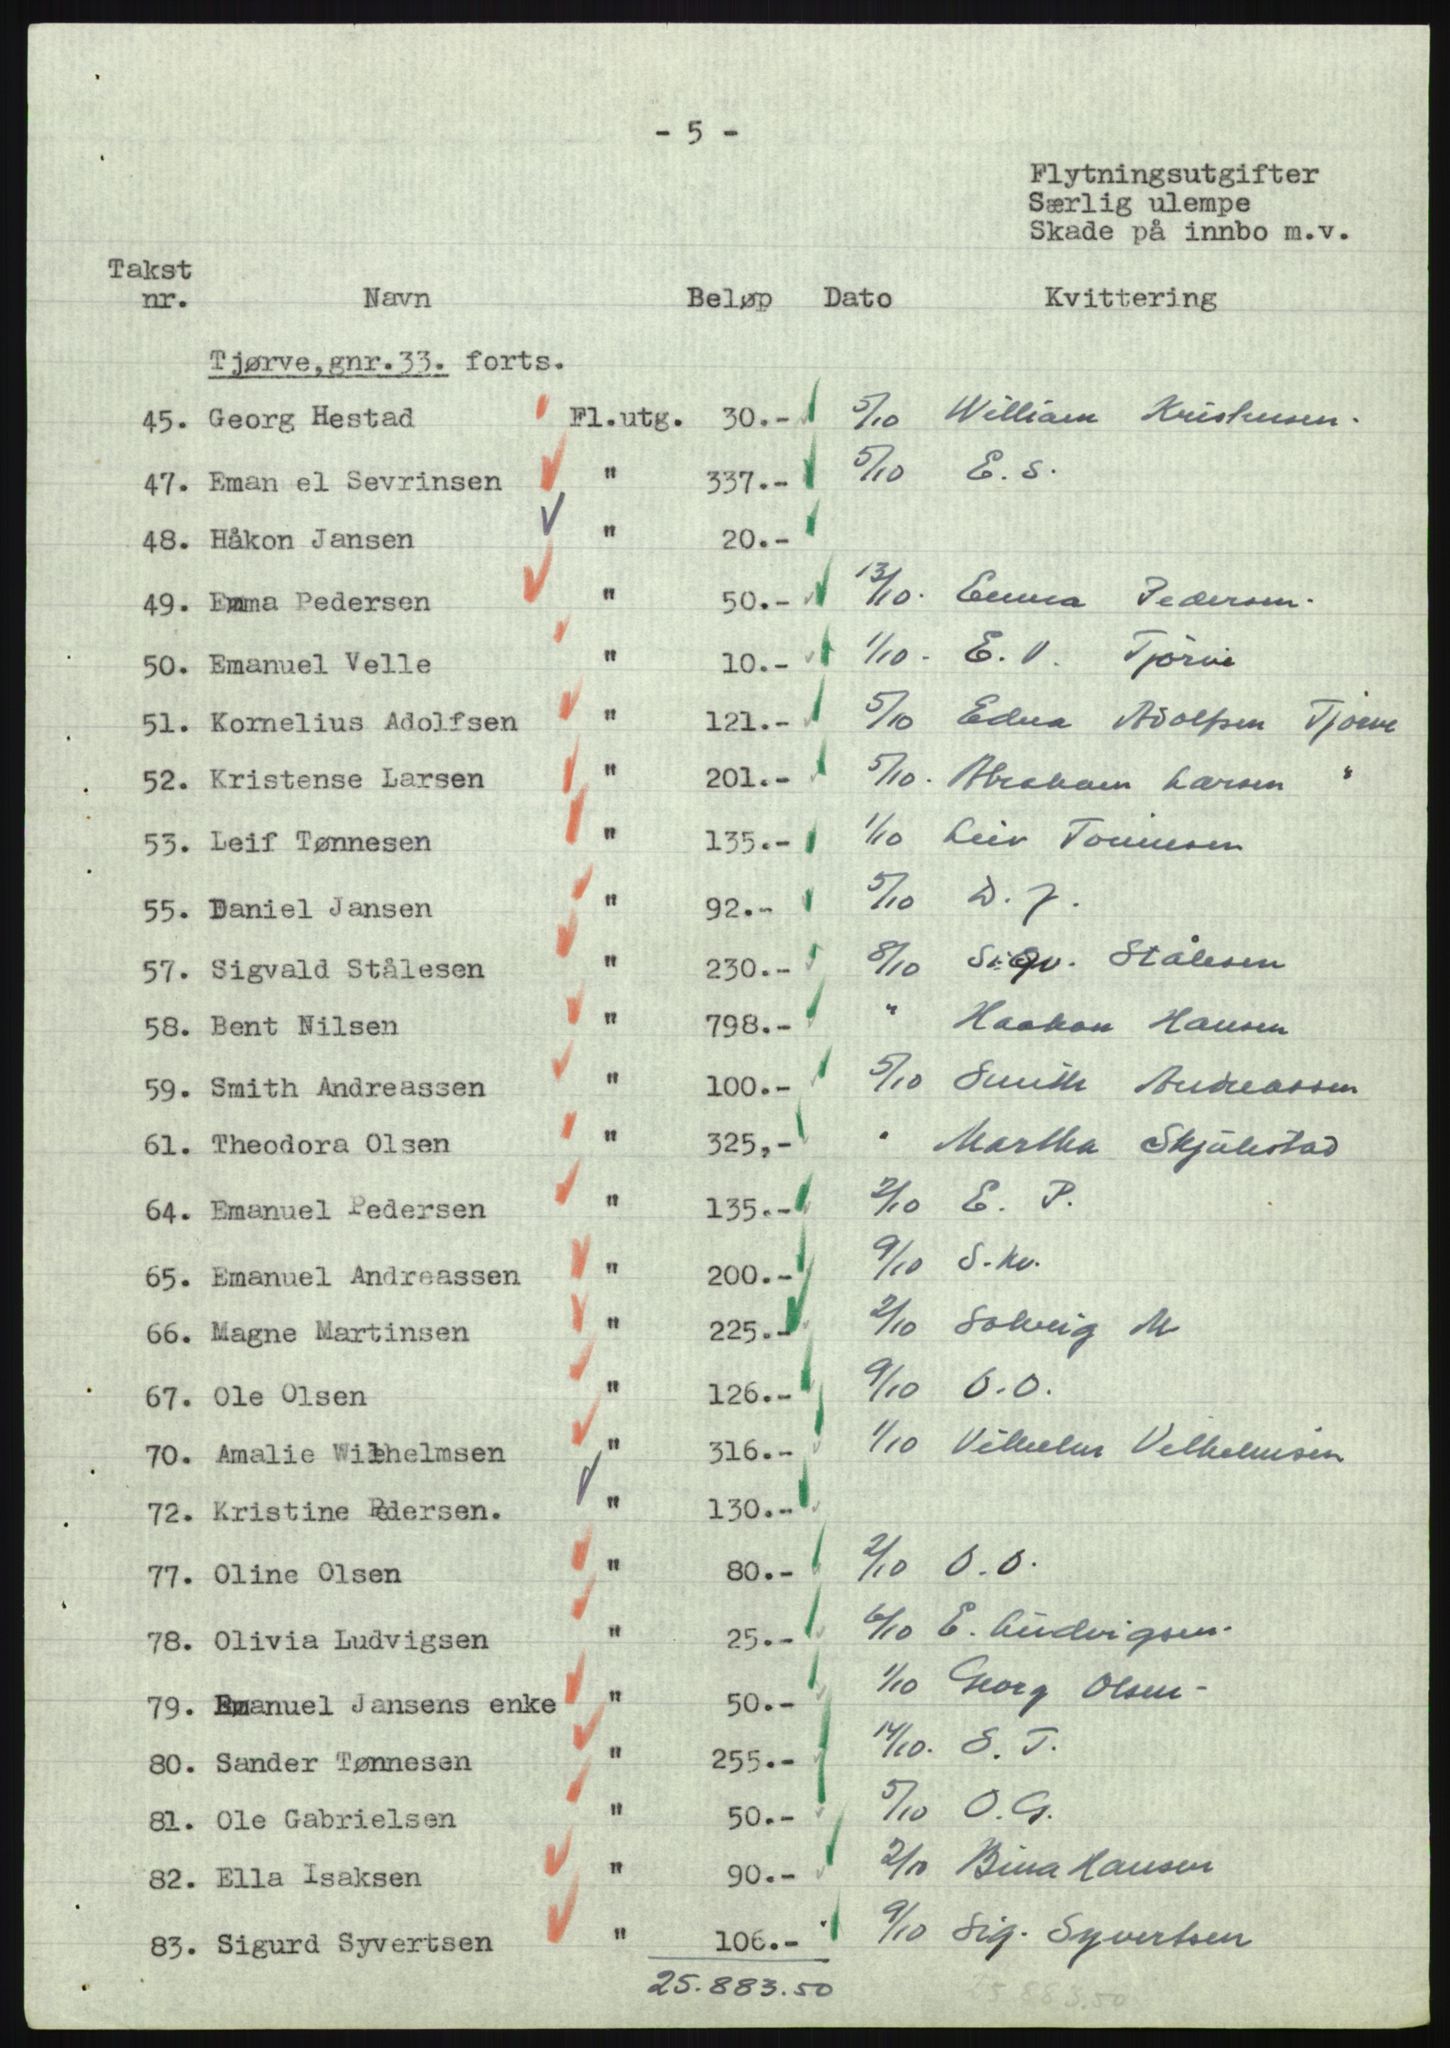 - 5 -
Flytningsutgifter
Særlig ulempe
Skade på innbo m.v.
Takst
nr. Navn Beløp Dato Kvittering
Tjørve,gnr.33. forts.
45. Georg Hestad Fl.utg. 30.- 5/10 William Kristensen.
47. Eman el Sevrinsen " 337.- 5/10 E. S.
48. Håkon Jansen " 20.-
49. Emma Pedersen " 50.- 13/10. Emma Pedersen.
50. Emanuel Velle " 10.- 1/10. E. V. Tjörve
51. Kornelius Adolfsen " 121.- 5/10 Edna Adolfsen Tjörve
52. Kristense Larsen " 201.- 5/10. Abraham Larsen "
53. Leif Tønnesen " 135.- 1/10 Leiv Tönnesen
55. Daniel Jansen " 92.- 5/10 D. J.
57. Sigvald Stålesen " 230.- 8/10 Sigv. Stålesen
58. Bent Nilsen " 798.- " Haakon Hansen
59. Smith Andreassen " 100.- 5/10 Smith Andreassen
61. Theodora Olsen " 325,- " Martha Skjulestad
64. Emanuel Pedersen " 135.- 2/10 E. P.
65. Emanuel Andreassen " 200.- 9/10 S. kv.
66. Magne Martinsen " 225.- 2/10 Solveig M
67. Ole Olsen " 126.- 9/10 O. O.
70. Amalie Wilhelmsen " 316.- 1/10 Vilhelm Vilhelmsen
72. Kristine Pedersen. " 130.-
77. Oline Olsen " 80.- 2/10 O. O.
78. Olivia Ludvigsen " 25.- 6/10 E. Ludvigsen.
79. Emanuel Jansens enke " 50.- 1/10 Georg Olsen-
80. Sander Tønnesen " 255.- 14/10. S. T.
81. Ole Gabrielsen " 50.- 5/10 O. G.
82. Ella Isaksen " 90.- 2/10 Bina Hansen
83. Sigurd Syvertsen " 106.- 9/10 Sig. Syvertsen
25.883.50 25.883.50